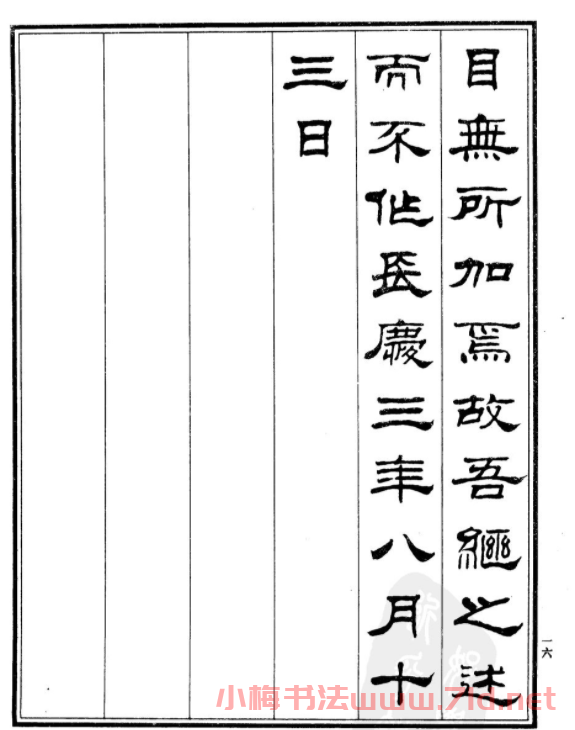 目無所加焉故吾繼之述
而不作長慶三年八月十
三日
一六
小梅书法www.71d.net